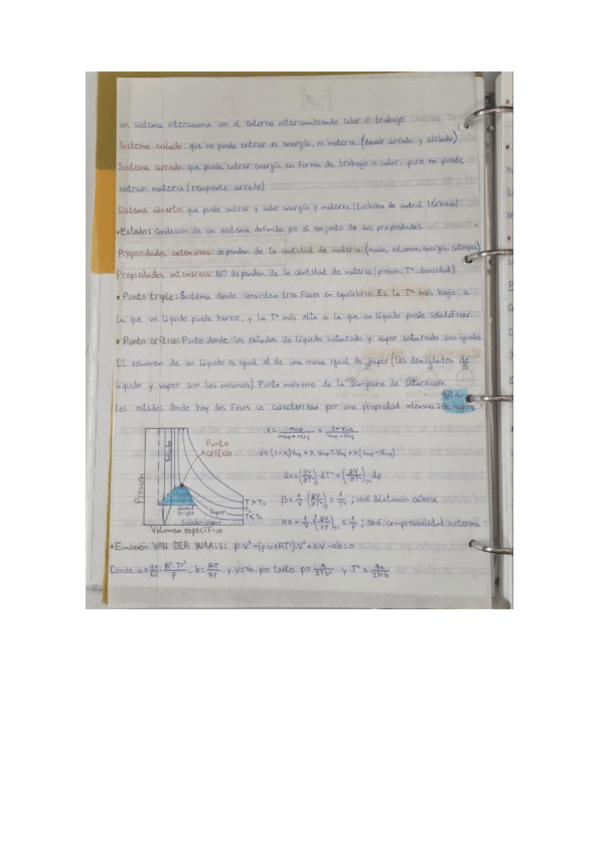 un sistema interacciona con el entorno intercambiando calor o trabajo.
Sistema aislado: que no puede entrar ni energía, ni materia (envase cerrado y aislado)
Sistema cerrado: que puede entrar energía en forma de trabajo o calor, pero no puede
entrar materia (recipiente cerrado)
Sistema abierto: que puede entrar y salir energía y materia (turbina de central térmica)
• Estado: Condición de un sistema definida por el conjunto de sus propiedades.
Propiedades extensivas: dependen de la cantidad de materia (masa, volumen, energía, entropía)
Propiedades intensivas: NO dependen de la cantidad de materia (presión, Tª, densidad)
• Punto triple: Sistema donde coexisten tres fases en equilibrio. Es la Tª más baja a
la que un líquido puede hervir, y la Tª más alta a la que un líquido puede solidificar.
• Punto crítico: Punto donde los estados de líquido saturado y vapor saturado son iguales
El volumen de un líquido es igual al de una masa igual de vapor (las densidades de
líquido y vapor son las mismas). Punto máximo de la campana de saturación.
Los estados donde hay dos fases se caracterizan por una propiedad intensiva:
Presión
Sólido
Punto
crítico
Vapor
T>Tc
Tc
T<Tc
Sólido-vapor
Volumen específico
v=(1-x)vliq + x·vvap = vliq + x(vvap - vliq)
dv=(∂V/∂Tª)p·dTª+(∂V/∂p)Tª·dp
β=1/V·(∂V/∂Tª)p=1/Tª; coef. dilatación cúbica
; coef. compresibilidad isoterma
• Ecuación VAN DER WAALS: p·V³-(p·b+RTª)·V²+a·V-ab=0